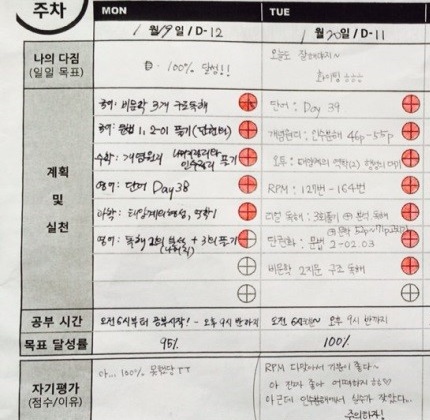 주차
MON
TUE
1월 19일 / D-12
1월 20일 / D-11
나의 다짐
(일일 목표)
100% 달성!!
오늘도 잘해보자~
화이팅
계획
및
실천
국어: 비문학 3개 구조독해
국어: 문법 1, 2-01 풀기
수학: 개념원리 나머지정리와
인수분해 풀기
영어: 단어 Day 38
과학: 태양계의
영어: 독해 2의 + 3의 풀기
단어: Day 39
개념원리: 인수분해 46p-55p
오투: 태양계의 역학(2)
RPM: 129번-164번
독해: 3회풀기
단권화: 문법 2-02.03
비문학 2지문 구조 독해
공부 시간
오전 6시부터 공부시작! - 오후 9시 반까지
오전 6시 ~ 오후 9시 반까지
목표 달성률
95%
100%
자기평가
(점수/이유)
아... 100% 못했당 ㅠㅠ
RPM 다맞아서 기분이 좋다~
아 진짜 좋아 어떠하지
아 근데 인수분해에서 실수가 잦았다...
주의하자!